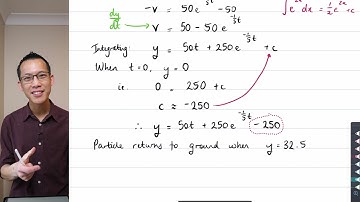 -v = 50e^{-1/5 t} - 50
dy/dt → v = 50 - 50e^{-1/5 t}
∫e^{2x} dx = 1/2 e^{2x} + c
Integrating: y = 50t + 250e^{-1/5 t} + c
When t=0, y=0
ie. 0 = 250 + c
c = -250
∴ y = 50t + 250e^{-1/5 t} - 250
Particle returns to ground when y = 32.5